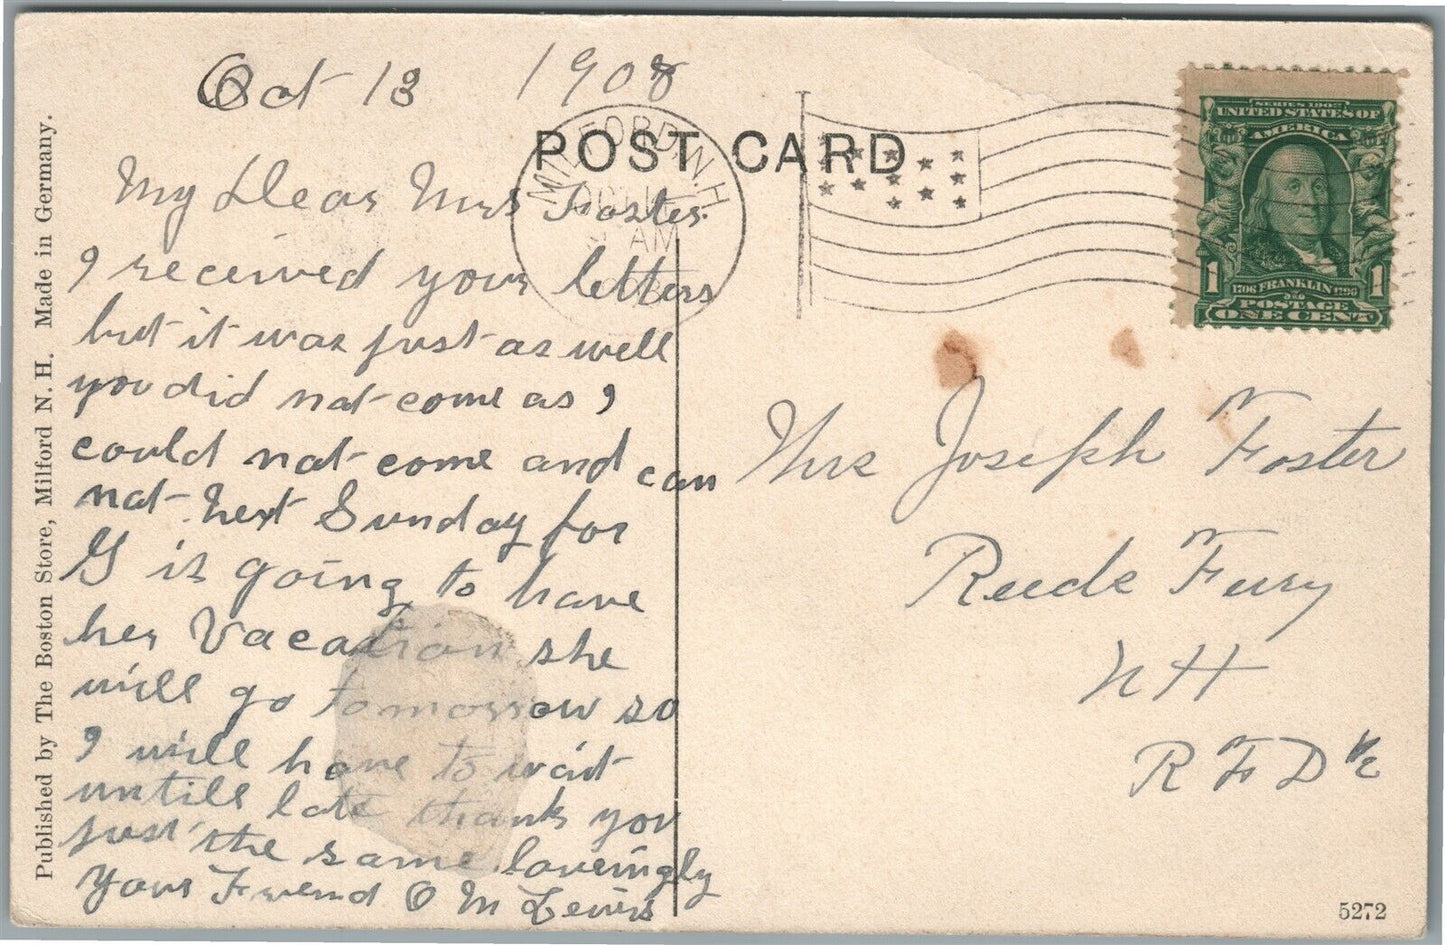 Oct 13 1908
POST CARD
MILFORD, N.H.
AM
SERIES 1902
UNITED STATES OF
AMERICA
1 1706 FRANKLIN 1790 1
POSTAGE
ONE CENT
My Dear Mrs Foster.
I received your letters
but it was just as well
you did not come as I
could not come and can
not next Sunday for
G is going to have
her Vacation she
will go tomorrow so
I will have to wait
untill late thank you
just the same loveingly
Your Friend O M Lewis
Mrs Joseph Foster
Reeds Fury
N H
R F D
Published by The Boston Store, Milford N. H. Made in Germany.
5272